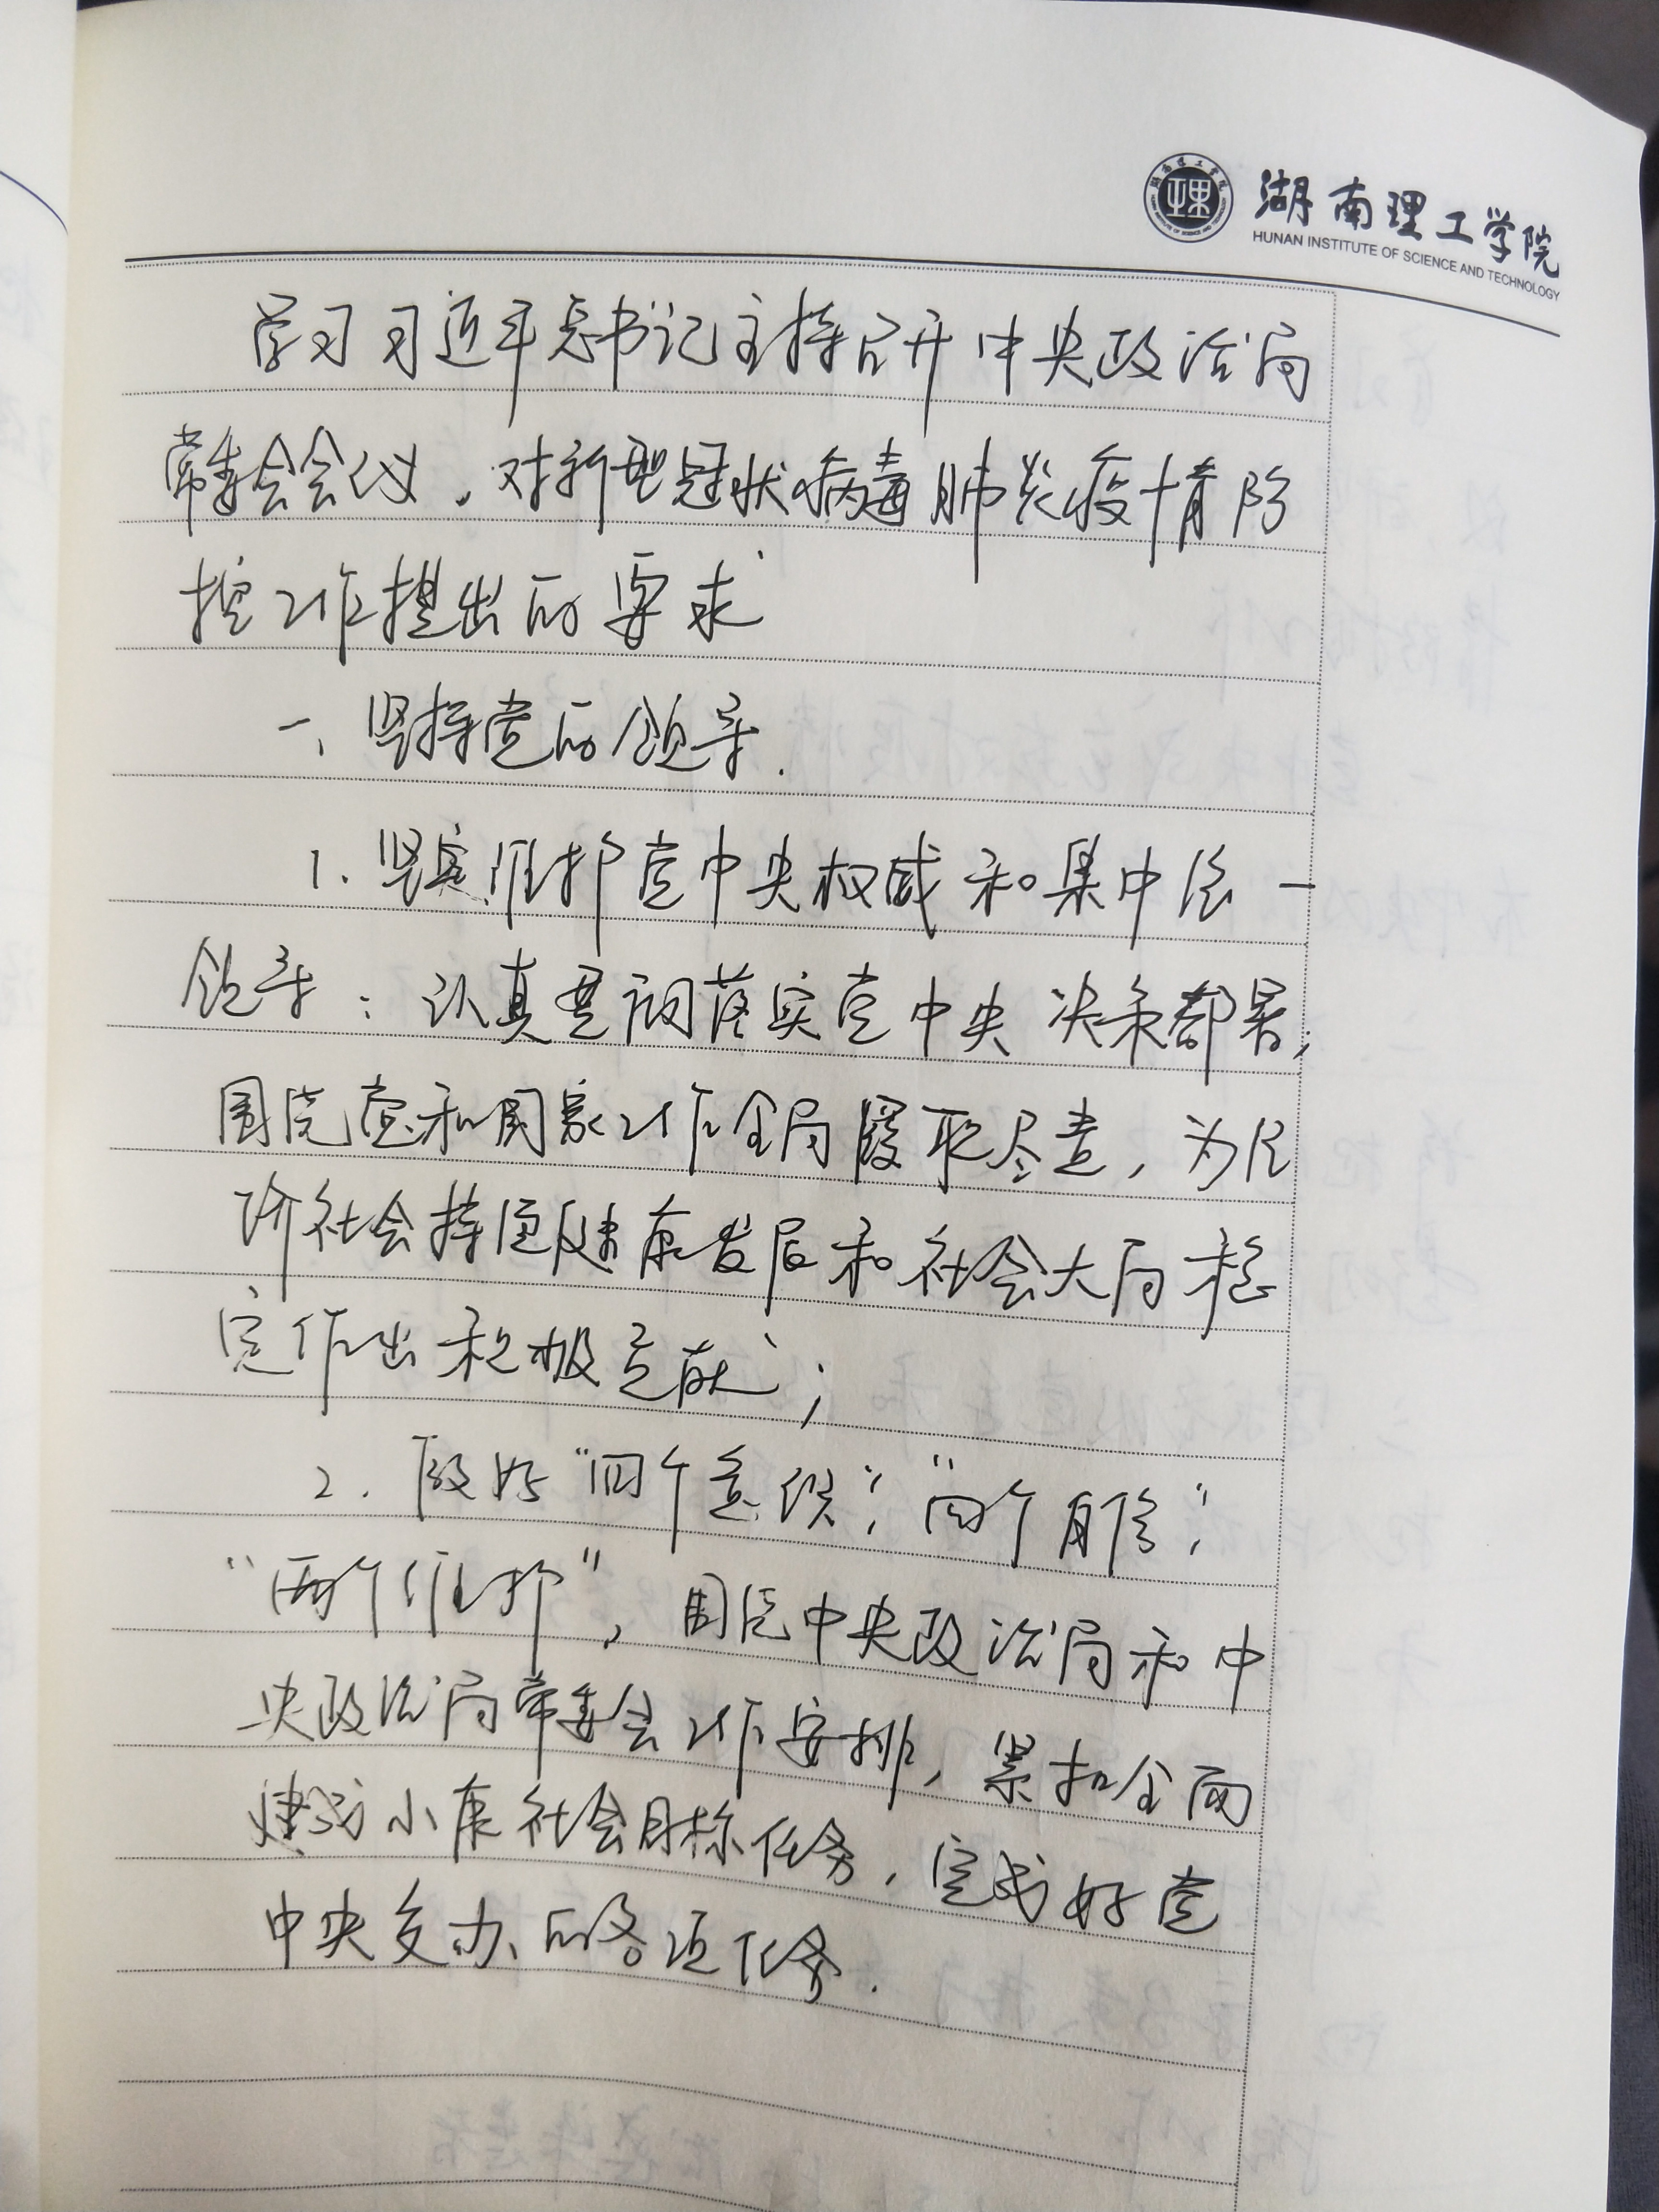 湖南理工学院
HUNAN INSTITUTE OF SCIENCE AND TECHNOLOGY
学习习近平总书记主持召开中央政治局
常委会会议，对新型冠状病毒肺炎疫情防
控工作提出的要求
一、坚持党的领导.
1. 坚定维护党中央权威和集中统一
领导：认真贯彻落实党中央决策部署，
围绕党和国家工作全局履职尽责，为经
济社会持续健康发展和社会大局稳
定作出积极贡献；
2. 做好“四个意识”，“四个自信”，
“两个维护”，围绕中央政治局和中
央政治局常委会工作安排，紧扣全面
建成小康社会目标任务，完成好党
中央交办的各项任务.